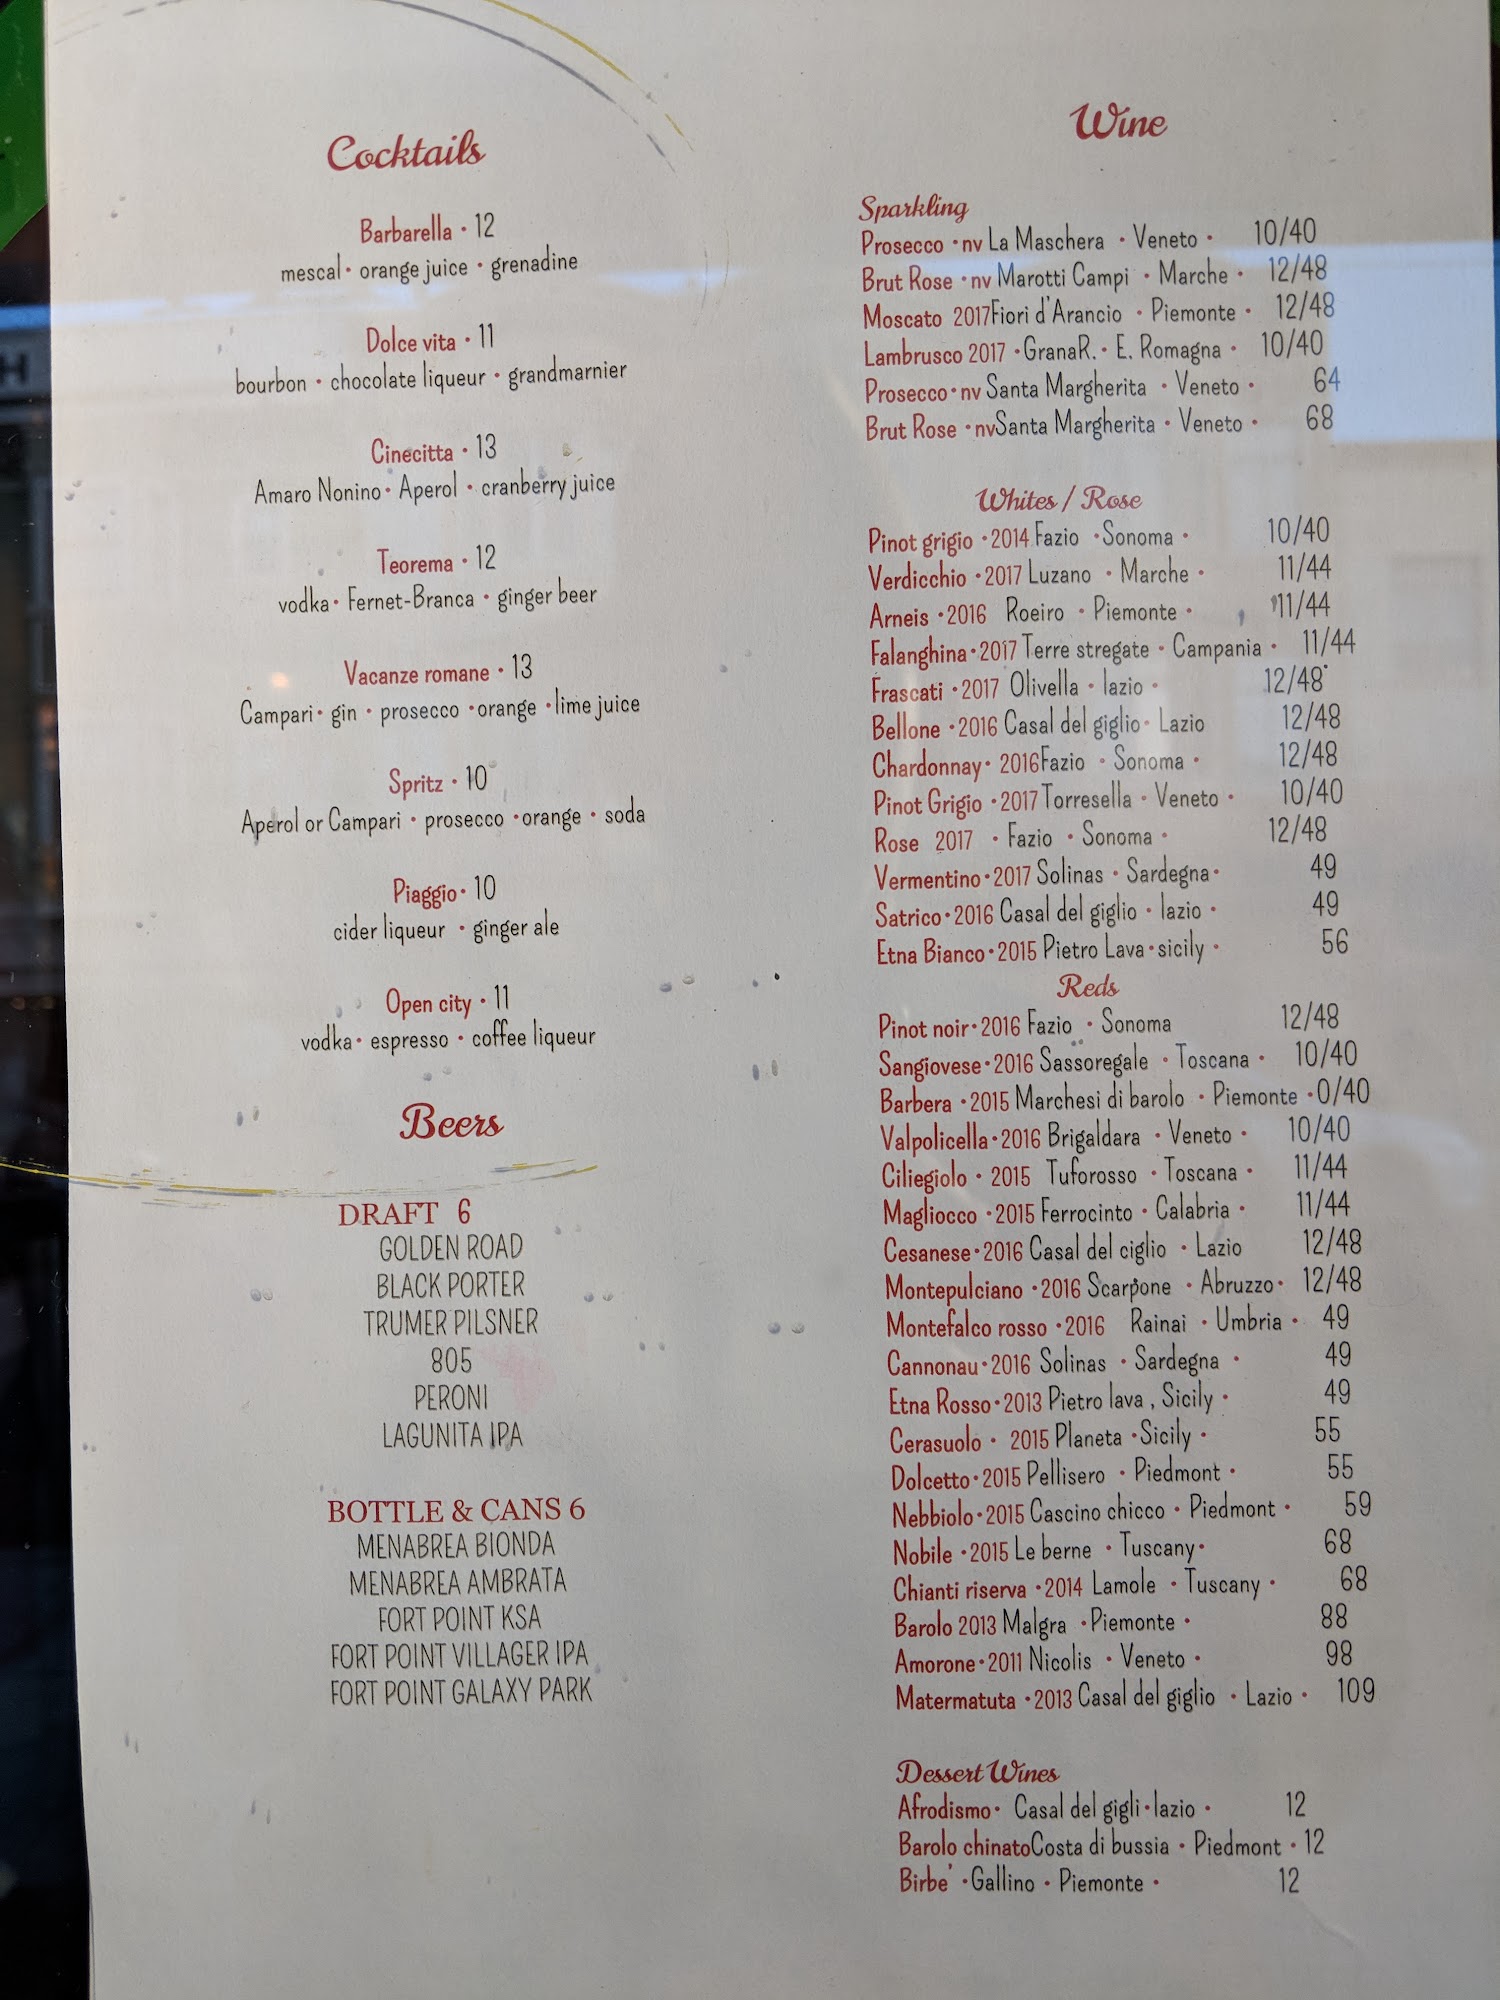 Cocktails
Barbarella · 12
mescal · orange juice · grenadine
Dolce vita · 11
bourbon · chocolate liqueur · grandmarnier
Cinecitta · 13
Amaro Nonino · Aperol · cranberry juice
Teorema · 12
vodka · Fernet-Branca · ginger beer
Vacanze romane · 13
Campari · gin · prosecco · orange · lime juice
Spritz · 10
Aperol or Campari · prosecco · orange · soda
Piaggio · 10
cider liqueur · ginger ale
Open city · 11
vodka · espresso · coffee liqueur
Beers
DRAFT 6
GOLDEN ROAD
BLACK PORTER
TRUMER PILSNER
805
PERONI
LAGUNITA IPA
BOTTLE & CANS 6
MENABREA BIONDA
MENABREA AMBRATA
FORT POINT KSA
FORT POINT VILLAGER IPA
FORT POINT GALAXY PARK
Wine
Sparkling
Prosecco · nv La Maschera · Veneto · 10/40
Brut Rose · nv Marotti Campi · Marche · 12/48
Moscato 2017Fiori d'Arancio · Piemonte · 12/48
Lambrusco 2017 · GranaR. · E. Romagna · 10/40
Prosecco · nv Santa Margherita · Veneto · 64
Brut Rose · nvSanta Margherita · Veneto · 68
Whites / Rose
Pinot grigio · 2014 Fazio · Sonoma · 10/40
Verdicchio · 2017 Luzano · Marche · 11/44
Arneis · 2016 Roeiro · Piemonte · 11/44
Falanghina · 2017 Terre stregate · Campania · 11/44
Frascati · 2017 Olivella · lazio · 12/48
Bellone · 2016 Casal del giglio · Lazio 12/48
Chardonnay · 2016Fazio · Sonoma · 12/48
Pinot Grigio · 2017 Torresella · Veneto · 10/40
Rose 2017 · Fazio · Sonoma · 12/48
Vermentino · 2017 Solinas · Sardegna · 49
Satrico · 2016 Casal del giglio · lazio · 49
Etna Bianco · 2015 Pietro Lava · sicily · 56
Reds
Pinot noir · 2016 Fazio · Sonoma 12/48
Sangiovese · 2016 Sassoregale · Toscana · 10/40
Barbera · 2015 Marchesi di barolo · Piemonte · 0/40
Valpolicella · 2016 Brigaldara · Veneto · 10/40
Ciliegiolo · 2015 Tuforosso · Toscana · 11/44
Magliocco · 2015 Ferrocinto · Calabria · 11/44
Cesanese · 2016 Casal del ciglio · Lazio 12/48
Montepulciano · 2016 Scarpone · Abruzzo · 12/48
Montefalco rosso · 2016 Rainai · Umbria · 49
Cannonau · 2016 Solinas · Sardegna · 49
Etna Rosso · 2013 Pietro lava , Sicily · 49
Cerasuolo · 2015 Planeta · Sicily · 55
Dolcetto · 2015 Pellisero · Piedmont · 55
Nebbiolo · 2015 Cascino chicco · Piedmont · 59
Nobile · 2015 Le berne · Tuscany · 68
Chianti riserva · 2014 Lamole · Tuscany · 68
Barolo 2013 Malgra · Piemonte · 88
Amorone · 2011 Nicolis · Veneto · 98
Matermatuta · 2013 Casal del giglio · Lazio · 109
Dessert Wines
Afrodismo · Casal del gigli · lazio · 12
Barolo chinatoCosta di bussia · Piedmont · 12
Birbe' · Gallino · Piemonte · 12